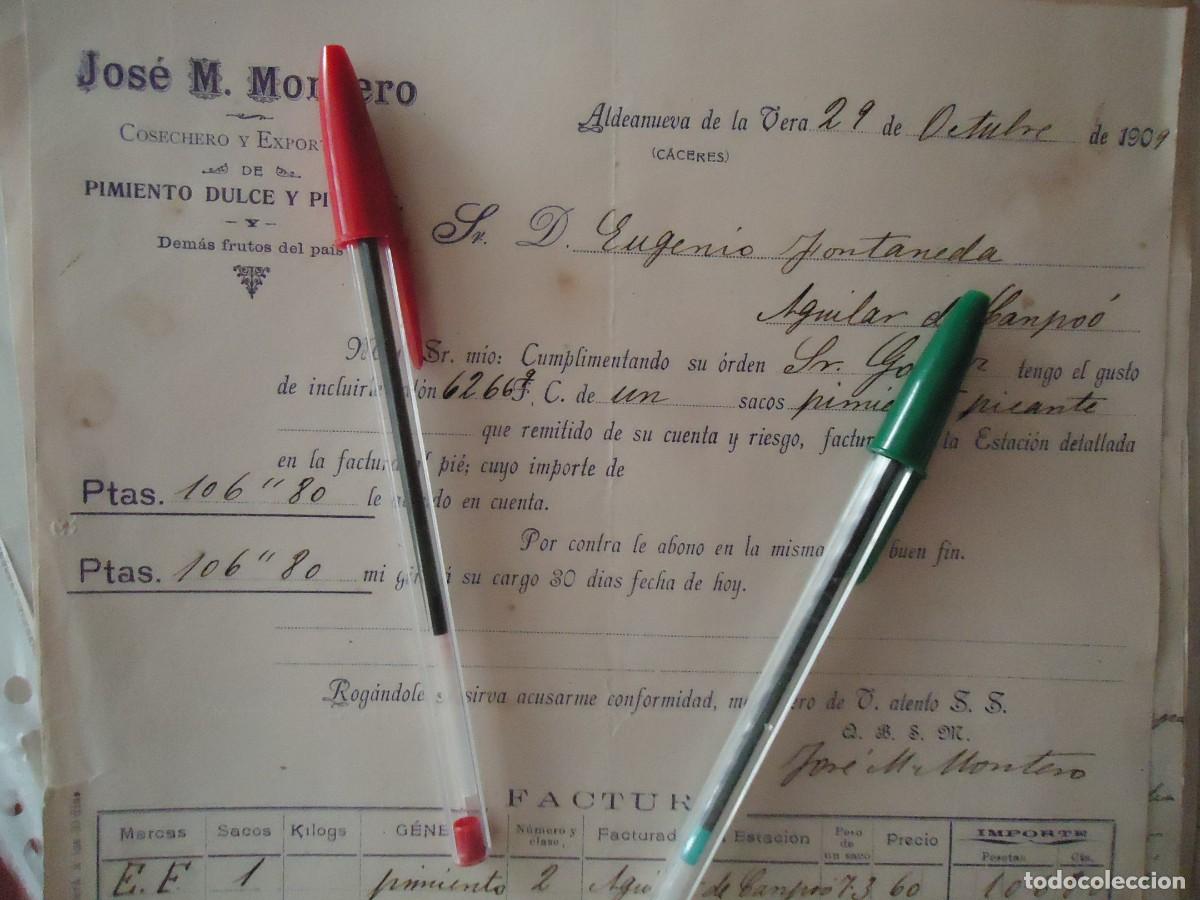 José M. Montero
COSECHERO Y EXPOR
DE
PIMIENTO DULCE Y PI
- Y -
Demás frutos del país
Aldeanueva de la Vera 29 de Octubre de 1909
(CÁCERES)
Sr. D. Eugenio Fontaneda
Aguilar de Canpoó
Sr. mío: Cumplimentando su órden Sr. tengo el gusto
de incluirle 6266 F. C. de un sacos pimiento picante
que remitido de su cuenta y riesgo, factur la Estación detallada
en la factura al pié; cuyo importe de
Ptas. 106" 80 le en cuenta.
Por contra le abono en la misma buen fin.
Ptas. 106" 80 mi giro á su cargo 30 dias fecha de hoy.
Rogándole se sirva acusarme conformidad, me de V. atento S. S.
Q. B. S. M.
José M. Montero
FACTUR
Marcas Sacos Kilogs GÉNE Número y clase, Facturad Estacion Peso de un saco Precio IMPORTE
Pesetas Cts.
E. F 1 pimiento 2 Aguilar de Canpoó 73 60
todocoleccion